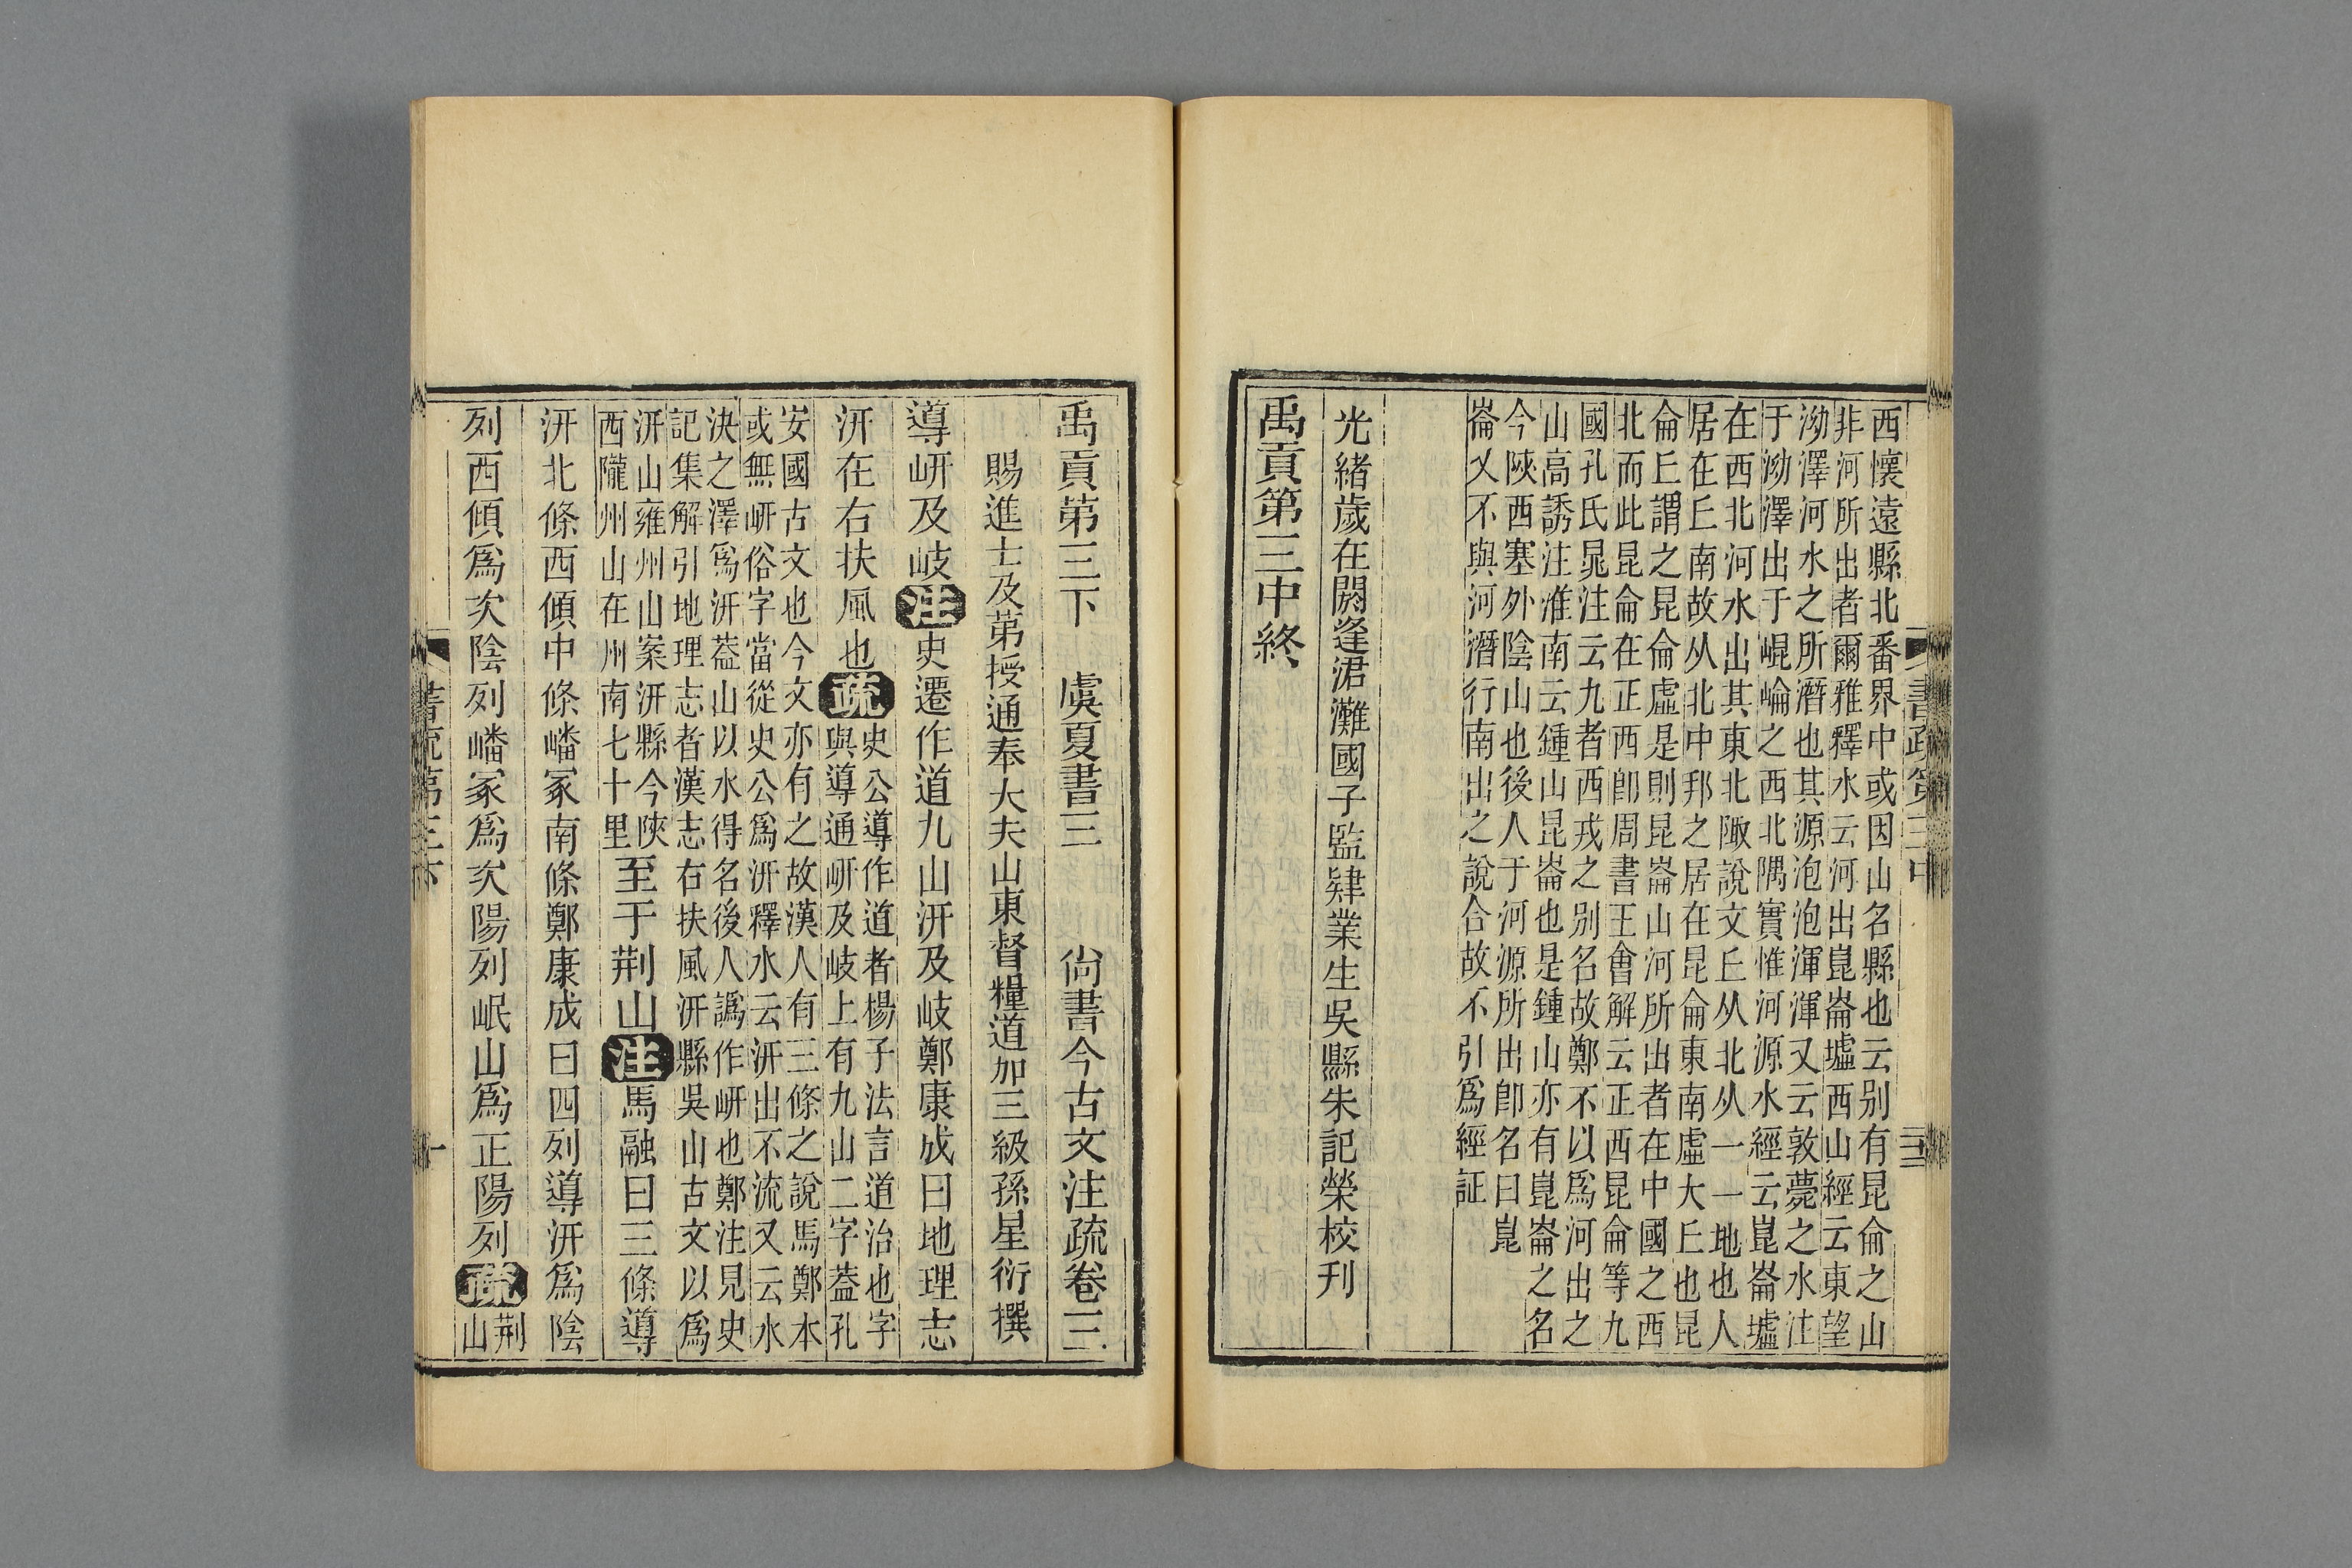 西懷遠縣北番界中或因山名縣也云别有昆侖之山
非河所出者爾雅釋水云河出崑崙墟西山經云東望
泑澤河水之所潛也其源泡泡渾渾又云敦薨之水注
于泑澤出于崐崘之西北隅實惟河源水經云崑崙墟
在西北河水出其東北陬說文丘从北从一一地也人
居在丘南故从北中邦之居在昆侖東南虛大丘也昆
侖丘謂之昆侖虛是則昆崙山河所出者在中國之西
北而此昆侖在正西卽周書王會解云正西昆侖等九
國孔氏晁注云九者西戎之别名故鄭不以爲河出之
山高誘注淮南云鍾山昆崙也是鍾山亦有崑崙之名
今陜西塞外陰山也後人于河源所出卽名曰崑
崙乂不與河潛行南出之說合故不引爲經証
光緒歲在閼逢涒灘國子監肄業生吳縣朱記榮校刊
禹貢第三中終
書疏第三中
三十三
禹貢第三下 虞夏書三 尙書今古文注疏卷三
賜進士及第授通奉大夫山東督糧道加三級孫星衍撰
導岍及岐注史遷作道九山汧及岐鄭康成曰地理志
汧在右扶風也疏史公導作道者楊子法言道治也字
與導通岍及岐上有九山二字葢孔
安國古文也今文亦有之故漢人有三條之說馬鄭本
或無岍俗字當從史公爲汧釋水云汧出不流又云水
決之澤爲汧葢山以水得名後人譌作岍也鄭注見史
記集解引地理志者漢志右扶風汧縣吳山古文以爲
汧山雍州山案汧縣今陜
西隴州山在州南七十里至于荆山注馬融曰三條導
汧北條西傾中條嶓冢南條鄭康成曰四列導汧爲陰
列西傾爲次陰列嶓冢爲次陽列岷山爲正陽列疏荆
山
書疏第三下
一